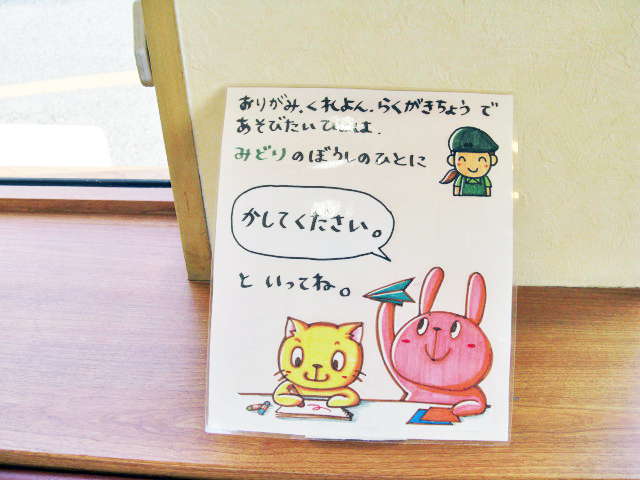 おりがみ、くれよん、らくがきちょう で
あそびたいひとは、
みどりのぼうしのひとに
かしてください。
と いってね。